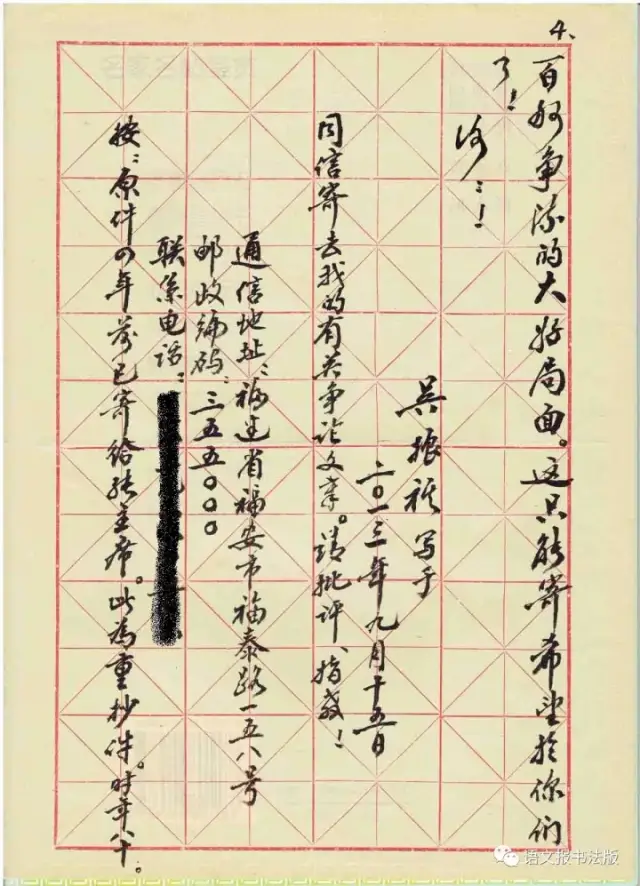 4、
百舸争流的大好局面。这只能寄希望於你们
了！
同信寄去我的有关争论文章。请批评、指教！
吴振禄 写于
二〇一三年九月十五日
通信地址：福建省福安市福泰路一五八号
邮政编码：三五五〇〇〇
联系电话：
按：原件四年前已寄给张主席。此为重抄件。时年八十。
语文报书法版